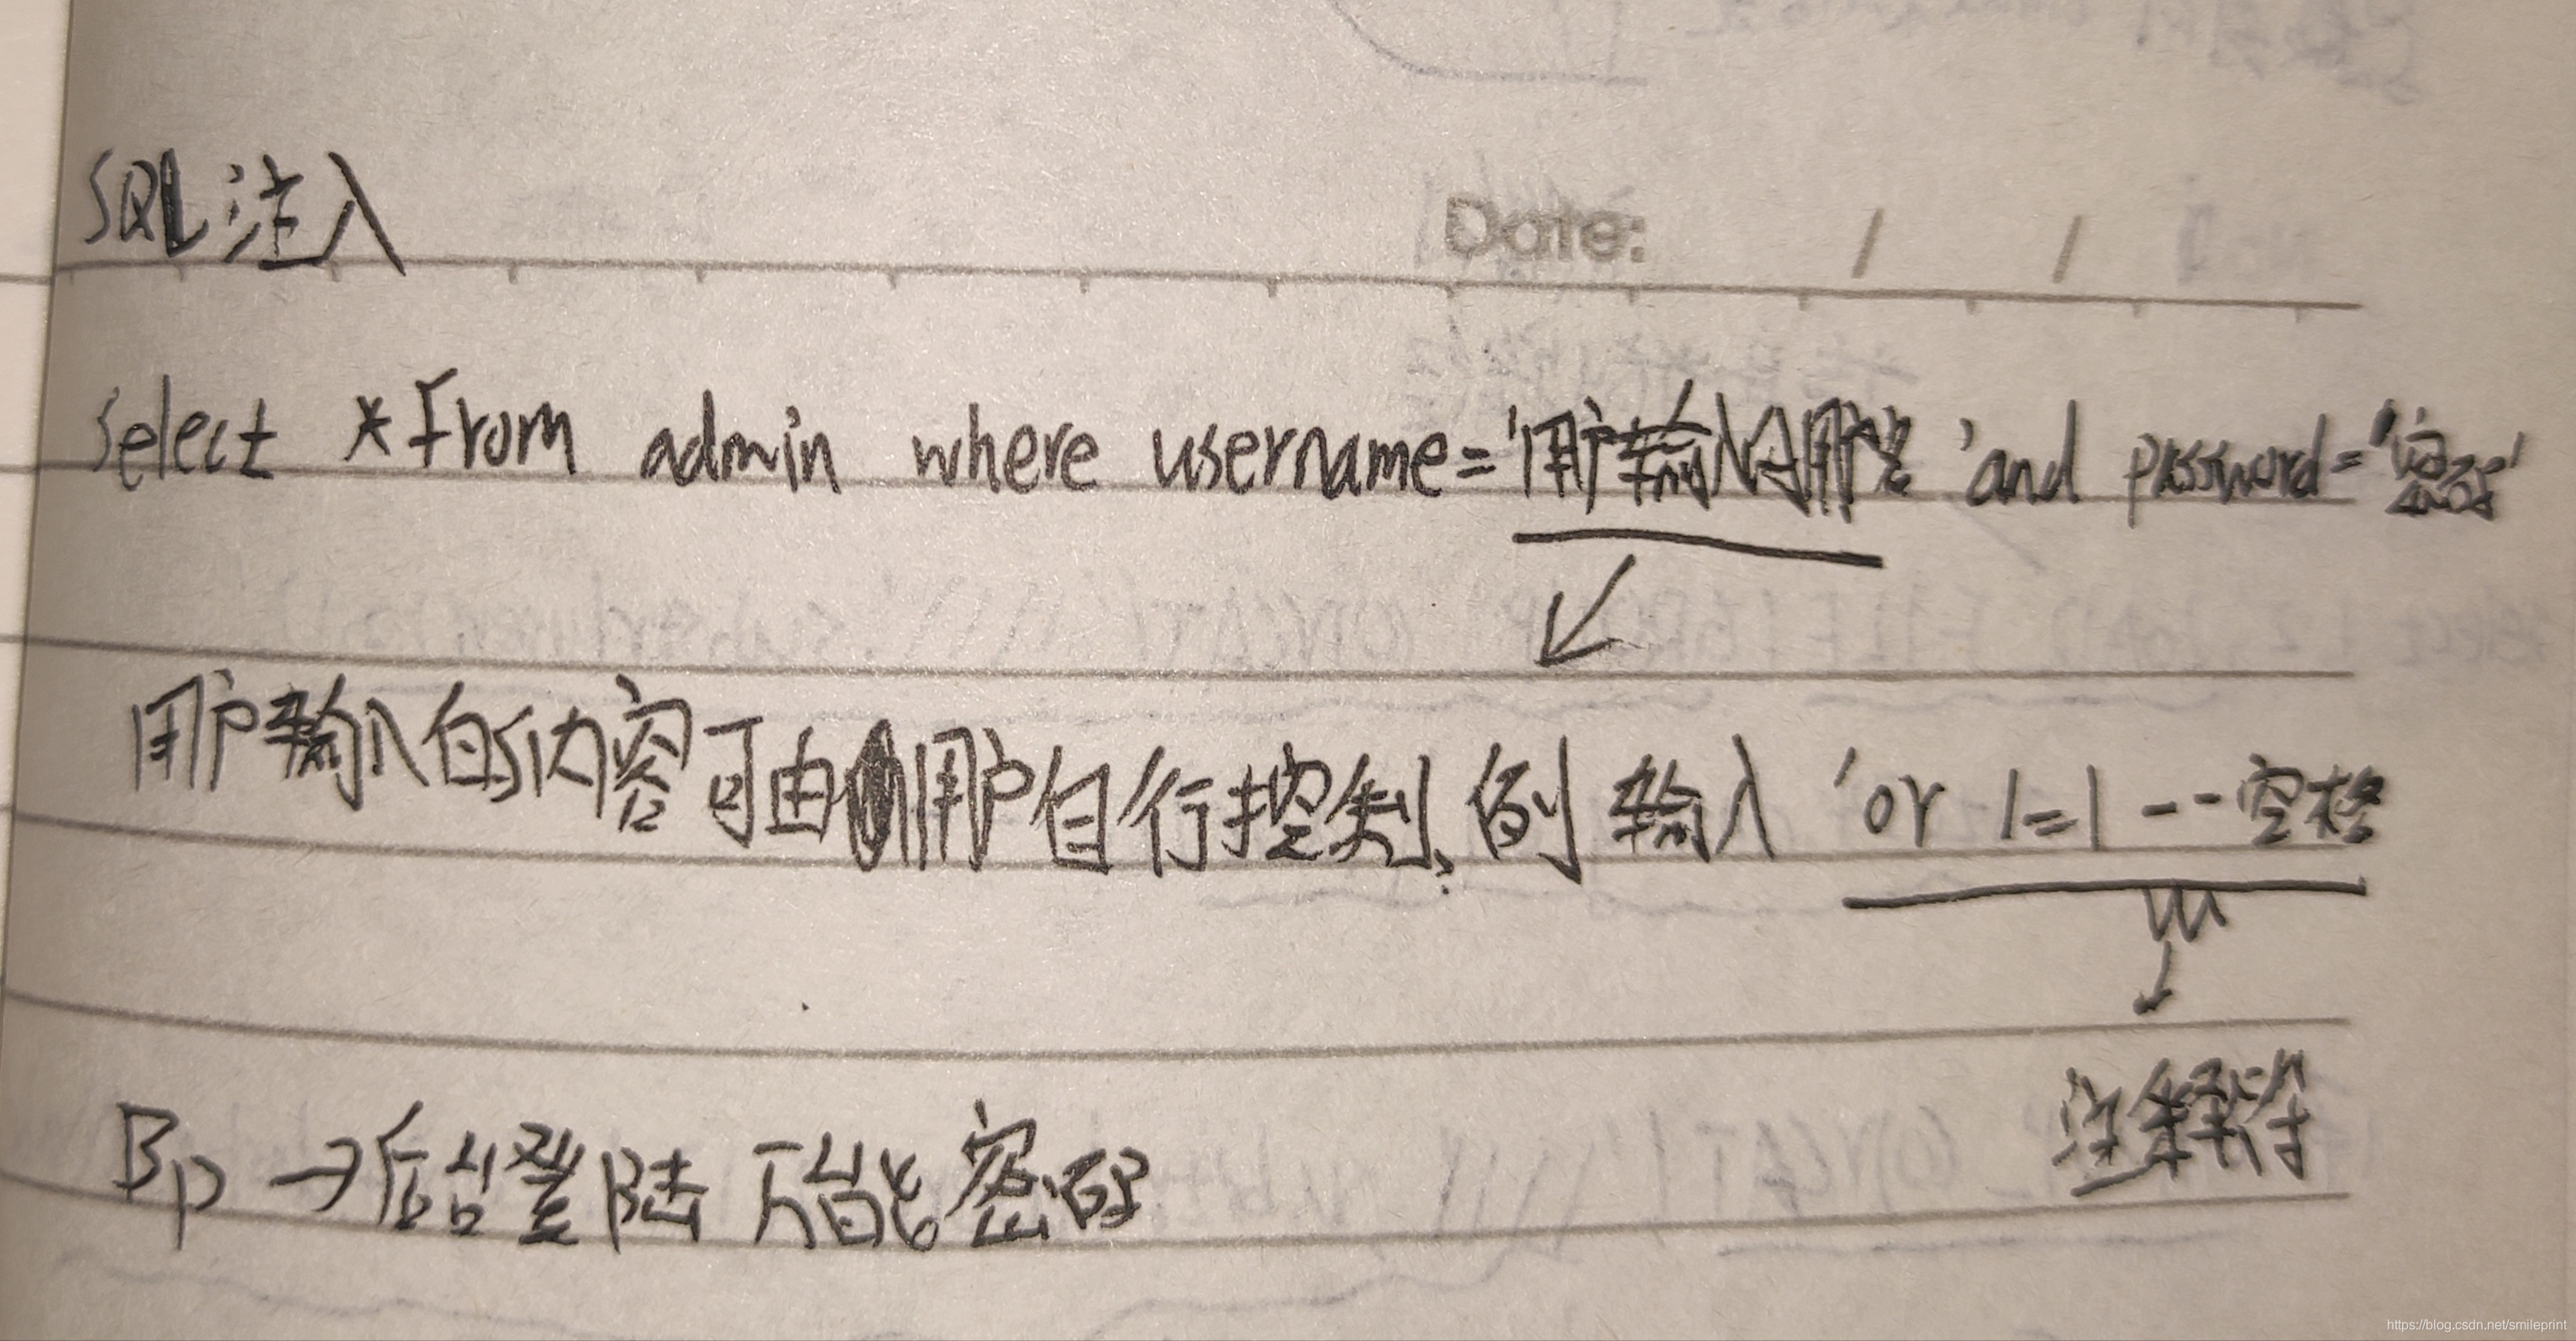 SQL注入
Date: / /
select * From admin where username='用户输入的用户名' and password='密码'
用户输入的内容可由用户自行控制,例 输入 'or 1=1 --空格
注释符
Bp →后台登陆 万能密码
https://blog.csdn.net/smileprint